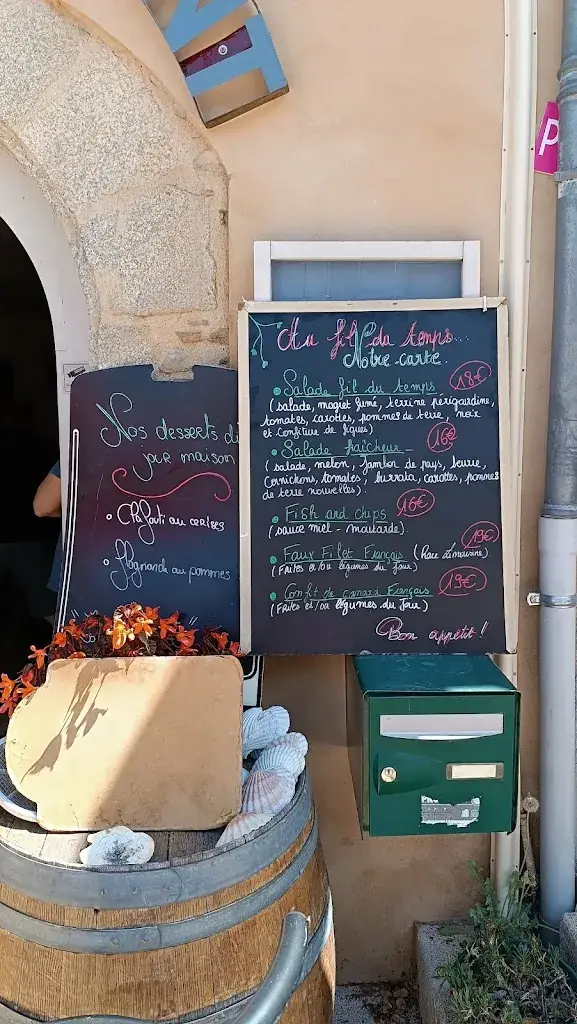 P
Au fil du temps...
Notre carte.
Salade fil du temps 18€
(salade, magret fumé, terrine périgordine,
tomates, carottes, pommes de terre, noix
et confiture de figues)
Salade fraîcheur 16€
(salade, melon, jambon de pays, beurre,
Cornichons, tomates, burrata, carottes, pommes
de terre nouvelles).
Fish and chips 16€
(sauce miel - moutarde)
Faux Filet Français (Race Limousine) 19€
(Frites et/ou légumes du Jour)
Confit de canard Français 19€
(Frites et/ou légumes du Jour)
Bon appétit !
Nos desserts du
jour maison
Clafouti au cerises
Flognarde au pommes